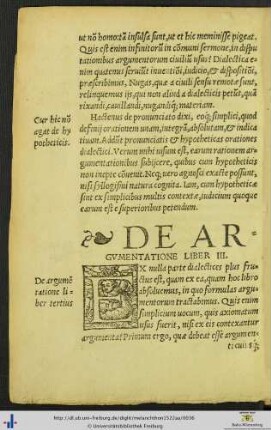 ut nō homotā insulsa sunt, ut et hic meminisse pigeat.
Quis est enim infinitorū in cōmuni sermone, in dispu
tationibus argumentorum civiliū usus? Dialectica e-
nim quatenus servit inventiōi, iudicio, & dispositiōi,
præscribimus. Nugas, quæ a civili sensu remotæ sunt,
relinquemus ijs, qui non aliud a dialecticis petūt, quā
rixandi, cavillandi, nugandiq; materiam.
Cur hic nō
agat de hy
potheticis.
Hactenus de pronunciato dixi, eoq; simplici, quod
definij orationem unam, integrā, absolutam, & indica
tivam. Addūt pronunciatis & hypotheticas orationes
dialectici. Verum mihi visum est, earum rationem ar-
gumentationibus subijcere, quibus cum hypotheticis
non inepte convenit. Neq; vero agnosci exacte possunt,
nisi syllogismi natura cognita. Iam, cum hypotheticæ
sint ex simplicibus multis contextæ, iudicium quoque
earum est e superioribus petendum.
DE AR-
GVMENTATIONE LIBER III.
De argumē
tatione li-
ber tertius
EX nulla parte dialectices plus fru-
ctus est, quam ex ea, quam hoc libro
absolvemus, in quo formulas argu-
mentorum tractabimus. Quis enim
simplicium vocum, quis axiomatum
usus fuerit, nisi ex eis contexantur
argumenta? Primum ergo, quæ debeat esse argumen-
http://dl.ub.uni-freiburg.de/diglit/melanchthon1522aa/0038
© Universitätsbibliothek Freiburg